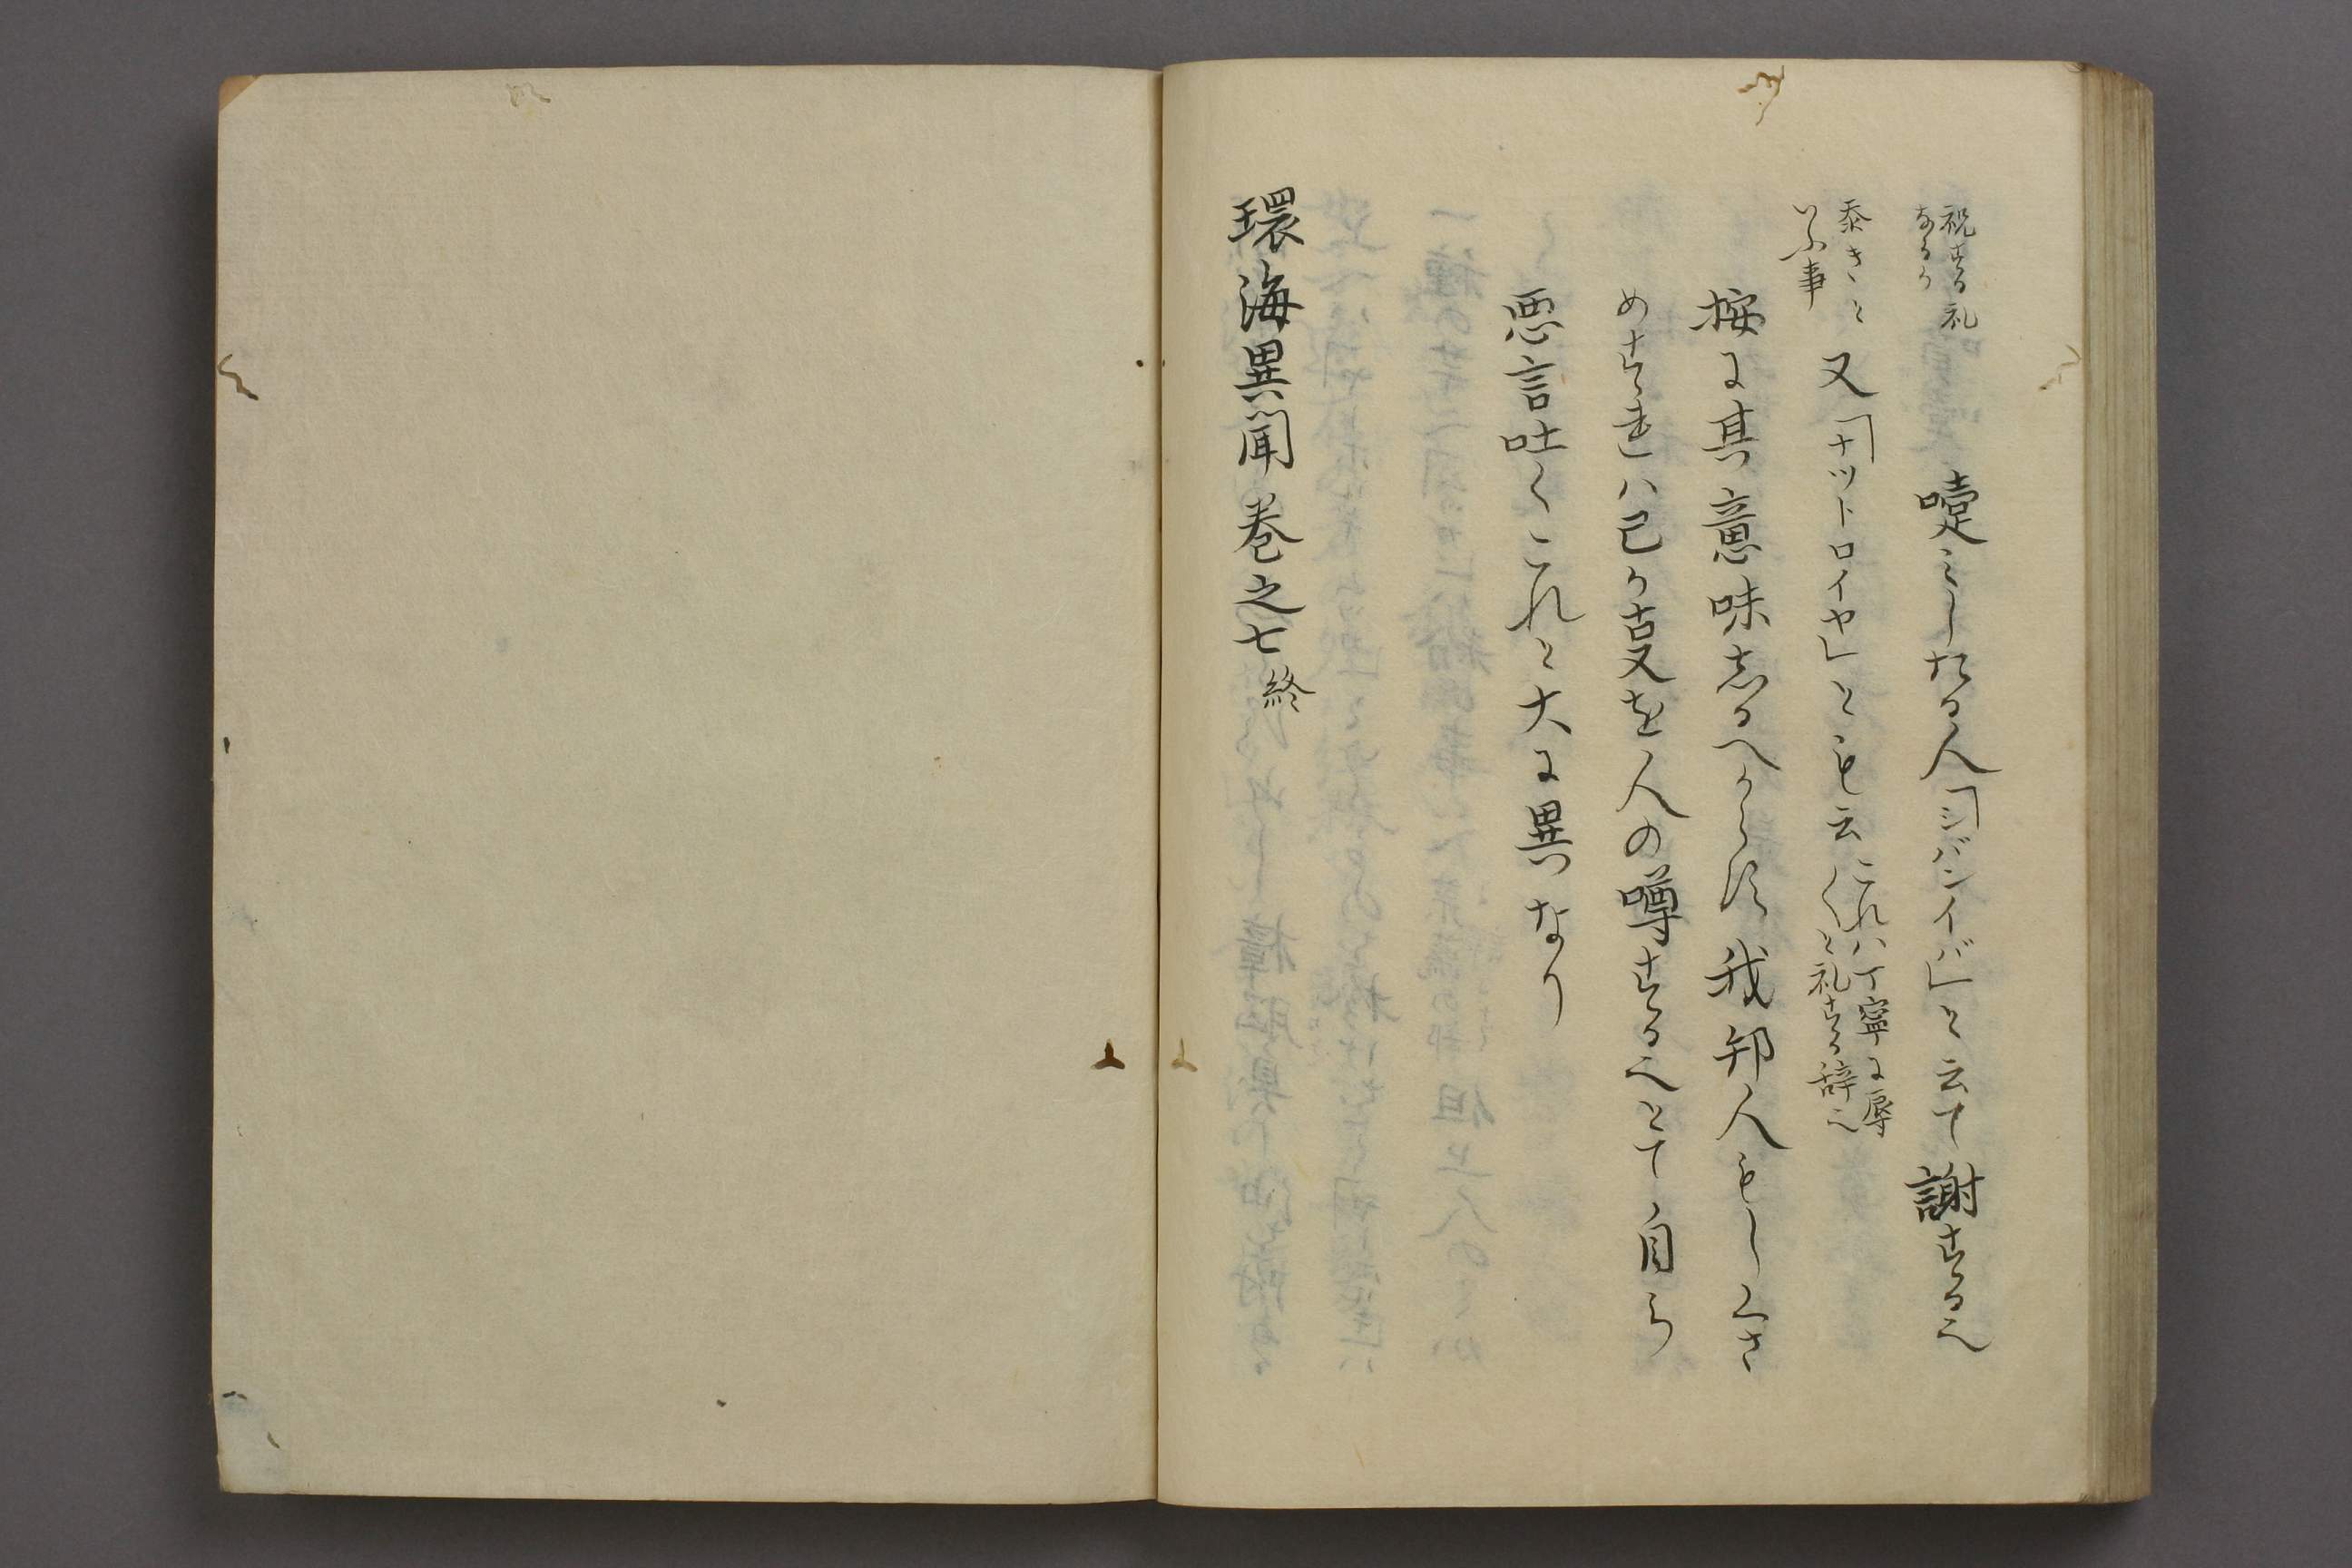 祝する礼
なるか
嚏をしたる人「シバシイバ」と云て謝する也
忝きと
いふ事
又「ナツトロイヤ」とも云
これハ丁寧に辱
く〳〵と礼する辞也
按に其意味志るへからす我邦人もしくさ
めすれハ己か㕝を人の噂する也とて自ら
悪言吐くこれと大に異なり
環海異聞巻之七終